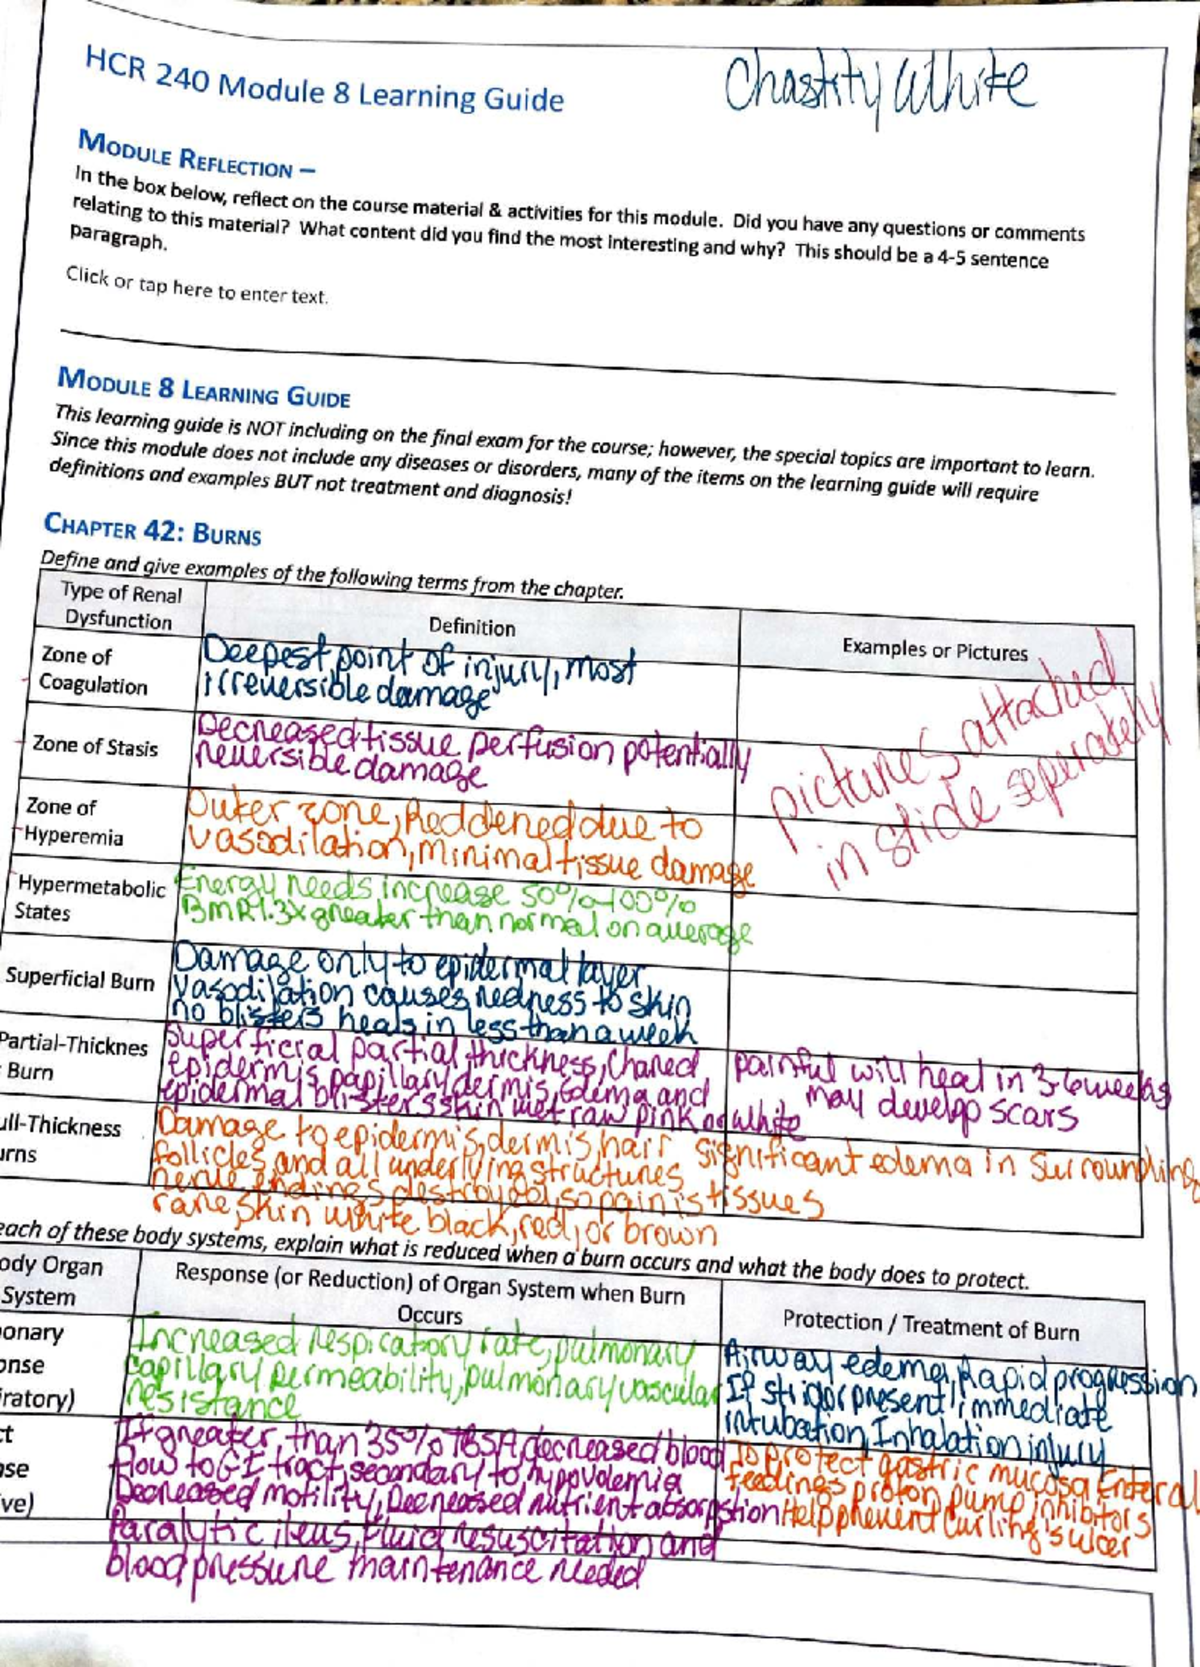 HCR 240 Module 8 Learning Guide
Chastity White
MODULE REFLECTION –
In the box below, reflect on the course material & activities for this module. Did you have any questions or comments
relating to this material? What content did you find the most interesting and why? This should be a 4-5 sentence
paragraph.
Click or tap here to enter text.
MODULE 8 LEARNING GUIDE
This learning guide is NOT including on the final exam for the course; however, the special topics are important to learn.
Since this module does not include any diseases or disorders, many of the items on the learning guide will require
definitions and examples BUT not treatment and diagnosis!
CHAPTER 42: BURNS
Define and give examples of the following terms from the chapter.
Type of Renal
Dysfunction
Definition
Examples or Pictures
Zone of
Coagulation
Deepest point of injury, most
irreversible damage
pictures attached
in slide seperately
Zone of Stasis
Decreased tissue perfusion potentially
reversible damage
Zone of
Hyperemia
Outer zone, Reddened due to
vasodilation, minimal tissue damage
Hypermetabolic
States
Energy needs increase 50%-100%
BMR 1.3x greater than normal on average
Superficial Burn
Damage only to epidermal layer
Vasodilation causes redness to skin
no blisters heals in less than a week
Partial-Thicknes
Burn
Superficial partial thickness, Chared
epidermis, papillary dermis, Edema and
epidermal blisters skin wet raw pink or white
painful will heal in 3-6 weeks
may develop scars
ull-Thickness
urns
Damage to epidermis, dermis, hair
follicles, and all underlying structures
nerve endings destroyed, so pain is
rare, skin white black, red, or brown
Significant edema in surrounding
tissues
each of these body systems, explain what is reduced when a burn occurs and what the body does to protect.
ody Organ
System
Response (or Reduction) of Organ System when Burn
Occurs
Protection / Treatment of Burn
onary
onse
iratory)
Increased respicatory rate, pulmonary
capillary permeability, pulmonary vascular
resistance
Airway edema, Rapid progression
If strigor present immediate
intubation, Inhalation injury
ct
nse
ive)
If greater, than 35% TBSA, decreased blood
flow to GI tract, secondary to hypovolemia
Decreased motility, Decreased nutrient absorpstion
Paralytic ileus, fluid resuscitation and
blood pressure maintenance needed
To protect gastric mucosa Enteral
feedings proton pump inhibitors
Help prevent Curling's ulcer